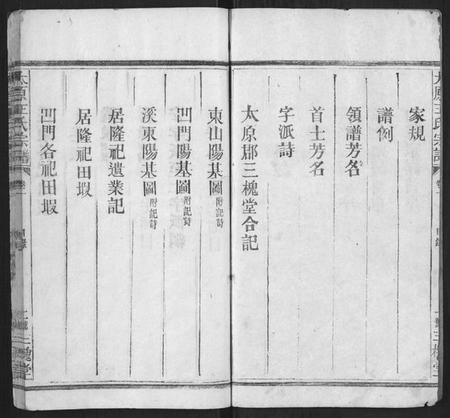 家規
譜例
領譜芳名
首士芳名
字派詩
太原郡三槐堂合記
東山陽基圖附記詩
凹門陽基圖附記詩
溪東陽基圖附記詩
居隆祀遺業記
居隆祀田塅
凹門各祀田塅
太原王氏宗譜